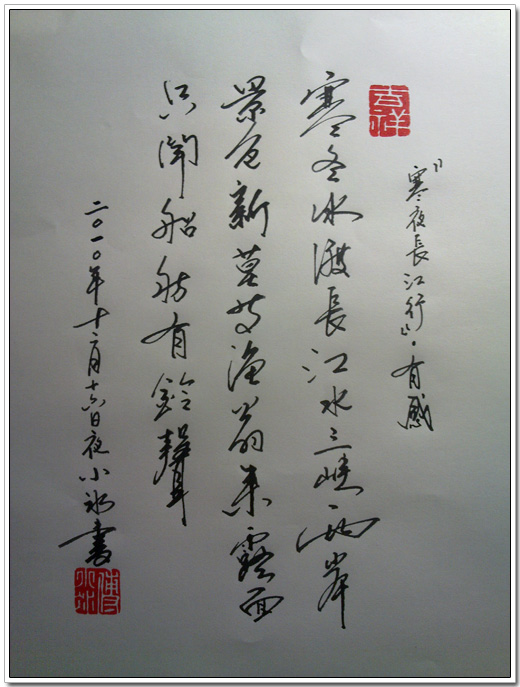 吉祥
『寒夜長江行』·有感
寒冬冰渡長江水三峽兩岸
景色新漁翁未露面
只聞船舫有鈴聲
二〇一〇年十二月十六日夜小冰書